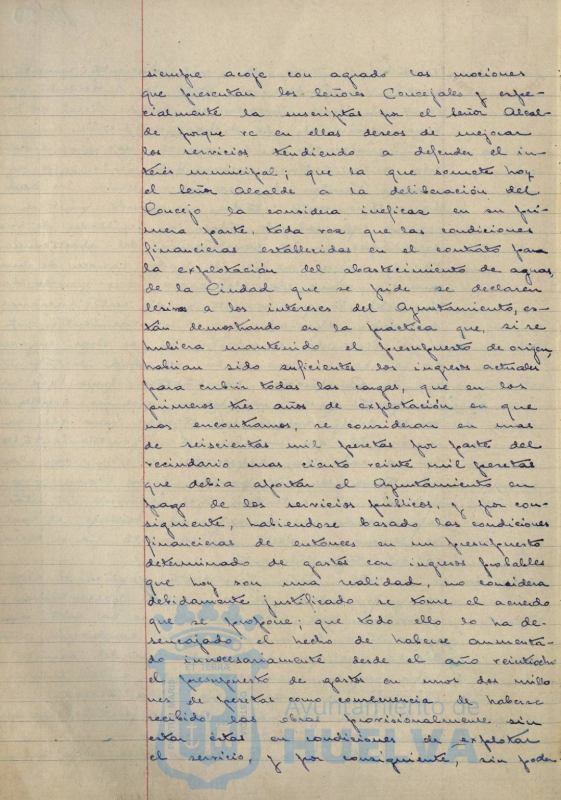 siempre acoje con agrado las mociones
que presentan los Señores Concejales y espe-
cialmente la suscriptas por el Señor Alcal-
de porque ve en ellas deseos de mejorar
los servicios tendiendo a defender el in-
terés municipal; que la que somete hoy
el Señor Alcalde a la deliberación del
Concejo la considera ineficaz en su pri-
mera parte, toda vez que las condiciones
financieras establecidas en el contrato para
la explotación del abastecimiento de aguas,
de la Ciudad que se pide se declaren
lesivas a los intereses del Ayuntamiento, es-
tán demostrando en la práctica que, si se
hubiera mantenido el presupuesto de origen,
habrian sido suficientes los ingresos actuales
para cubrir todas las cargas, que en los
primeros tres años de explotación en que
nos encontramos, se consideran en mas
de seiscientas mil pesetas por parte del
vecindario mas ciento veinte mil pesetas
que debia aportar el Ayuntamiento en
pago de los servicios públicos, y por con-
siguiente, habiendose basado las condiciones
financieras de entonces en un presupuesto
determinado de gastos con ingresos probables
que hoy son una realidad, no considera
debidamente justificado se tome el acuerdo
que se propone; que todo ello lo ha de-
sencajado el hecho de haberse aumenta-
do innecesariamente desde el año veintiocho
el presupuesto de gastos en unos dos millo-
nes de pesetas como consecuencia de haberse
recibido las obras provisionalmente sin
estar estas en condiciones de explotar
el servicio, y por consiguiente, sin poder
Ayuntamiento de
HUELVA